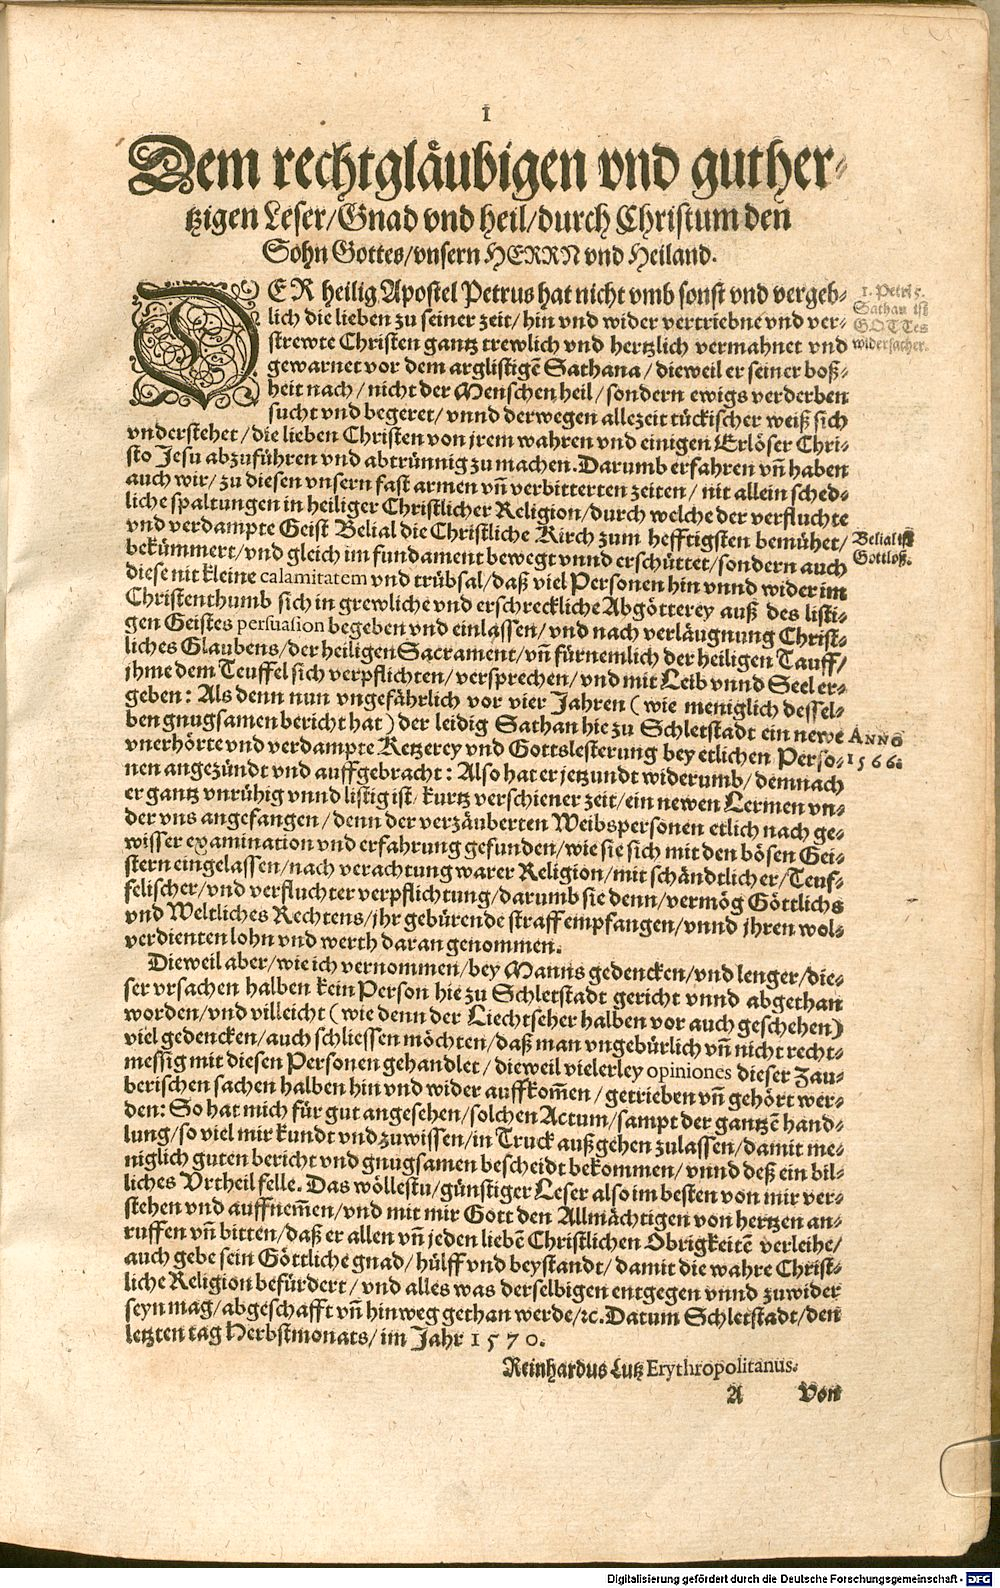 I
Dem rechtgläubigen vnd guther⸗
tzigen Leser/Gnad vnd heil/durch Christum den
Sohn Gottes/vnsern HERRN vnd Heiland.
DER heilig Apostel Petrus hat nicht vmb sonst vnd vergeb⸗
lich die lieben zu seiner zeit/hin vnd wider vertriebne vnd ver⸗
strewte Christen gantz trewlich vnd hertzlich vermahnet vnd
gewarnet vor dem arglistigē Sathana/dieweil er seiner boß⸗
heit nach/nicht der Menschen heil/sondern ewigs verderben
sucht vnd begeret/vnnd derwegen allezeit tückischer weiß sich
vnderstehet/die lieben Christen von jrem wahren vnd einigen Erlöser Chri⸗
sto Jesu abzuführen vnd abtrünnig zu machen. Darumb erfahren vn̄ haben
auch wir/zu diesen vnsern fast armen vn̄ verbitterten zeiten/nit allein sched⸗
liche spaltungen in heiliger Christlicher Religion/durch welche der verfluchte
vnd verdampte Geist Belial die Christliche Kirch zum hefftigsten bemühet/
bekümmert/vnd gleich im fundament bewegt vnnd erschüttet/sondern auch
diese nit kleine calamitatem vnd trübsal/daß viel Personen hin vnnd wider im
Christenthumb sich in grewliche vnd erschreckliche Abgötterey auß des listi⸗
gen Geistes persuasion begeben vnd einlassen/vnd nach verläugnung Christ⸗
liches Glaubens/der heiligen Sacrament/vn̄ fürnemlich der heiligen Tauff/
jhme dem Teuffel sich verpflichten/versprechen/vnd mit Leib vnnd Seel er⸗
geben: Als denn nun vngefährlich vor vier Jahren (wie meniglich dessel⸗
ben gnugsamen bericht hat) der leidig Sathan hie zu Schletstadt ein newe
vnerhörte vnd verdampte Ketzerey vnd Gottslesterung bey etlichen Perso⸗
nen angezündt vnd auffgebracht: Also hat er jetzundt widerumb/demnach
er gantz vnrühig vnnd listig ist/kurtz verschiener zeit/ein newen Lermen vn⸗
der vns angefangen/denn der verzäuberten Weibspersonen etlich nach ge⸗
wisser examination vnd erfahrung gefunden/wie sie sich mit den bösen Gei⸗
stern eingelassen/nach verachtung warer Religion/mit schändtlicher/Teuf⸗
felischer/vnd verfluchter verpflichtung/darumb sie denn/vermög Göttlichs
vnd Weltliches Rechtens/jhr gebürende straff empfangen/vnnd jhren wol⸗
verdienten lohn vnd werth daran genommen.
Dieweil aber/wie ich vernommen/bey Manns gedencken/vnd lenger/die⸗
ser vrsachen halben kein Person hie zu Schletstadt gericht vnnd abgethan
worden/vnd villeicht (wie denn der Liechtseher halben vor auch geschehen)
viel gedencken/auch schliessen möchten/daß man vngebürlich vn̄ nicht recht⸗
messig mit diesen Personen gehandlet/dieweil vielerley opiniones dieser Zau⸗
berischen sachen halben hin vnd wider auffkom̄en/getrieben vn̄ gehört wer⸗
den: So hat mich für gut angesehen/solchen Actum/sampt der gantzē hand⸗
lung/so viel mir kundt vnd zuwissen/in Truck außgehen zulassen/damit me⸗
niglich guten bericht vnd gnugsamen bescheidt bekommen/vnnd deß ein bil⸗
liches Vrtheil felle. Das wöllestu/günstiger Leser also im besten von mir ver⸗
stehen vnd auffnem̄en/vnd mit mir Gott den Allmächtigen von hertzen an⸗
ruffen vn̄ bitten/daß er allen vn̄ jeden liebē Christlichen Obrigkeitē verleihe/
auch gebe sein Göttliche gnad/hülff vnd beystandt/damit die wahre Christ⸗
liche Religion befürdert/vnd alles was derselbigen entgegen vnnd zuwider
seyn mag/abgeschafft vn̄ hinweg gethan werde/ꝛc. Datum Schletstadt/den
letzten tag Herbstmonats/im Jahr 1570.
Reinhardus Lutz Erythropolitanus.
A Von
1. Petri 5.
Sathan ist
GOTTes
widersacher.
Belial ist
Gottloß.
ANNO
1566.
Digitalisierung gefördert durch die Deutsche Forschungsgemeinschaft - DFG